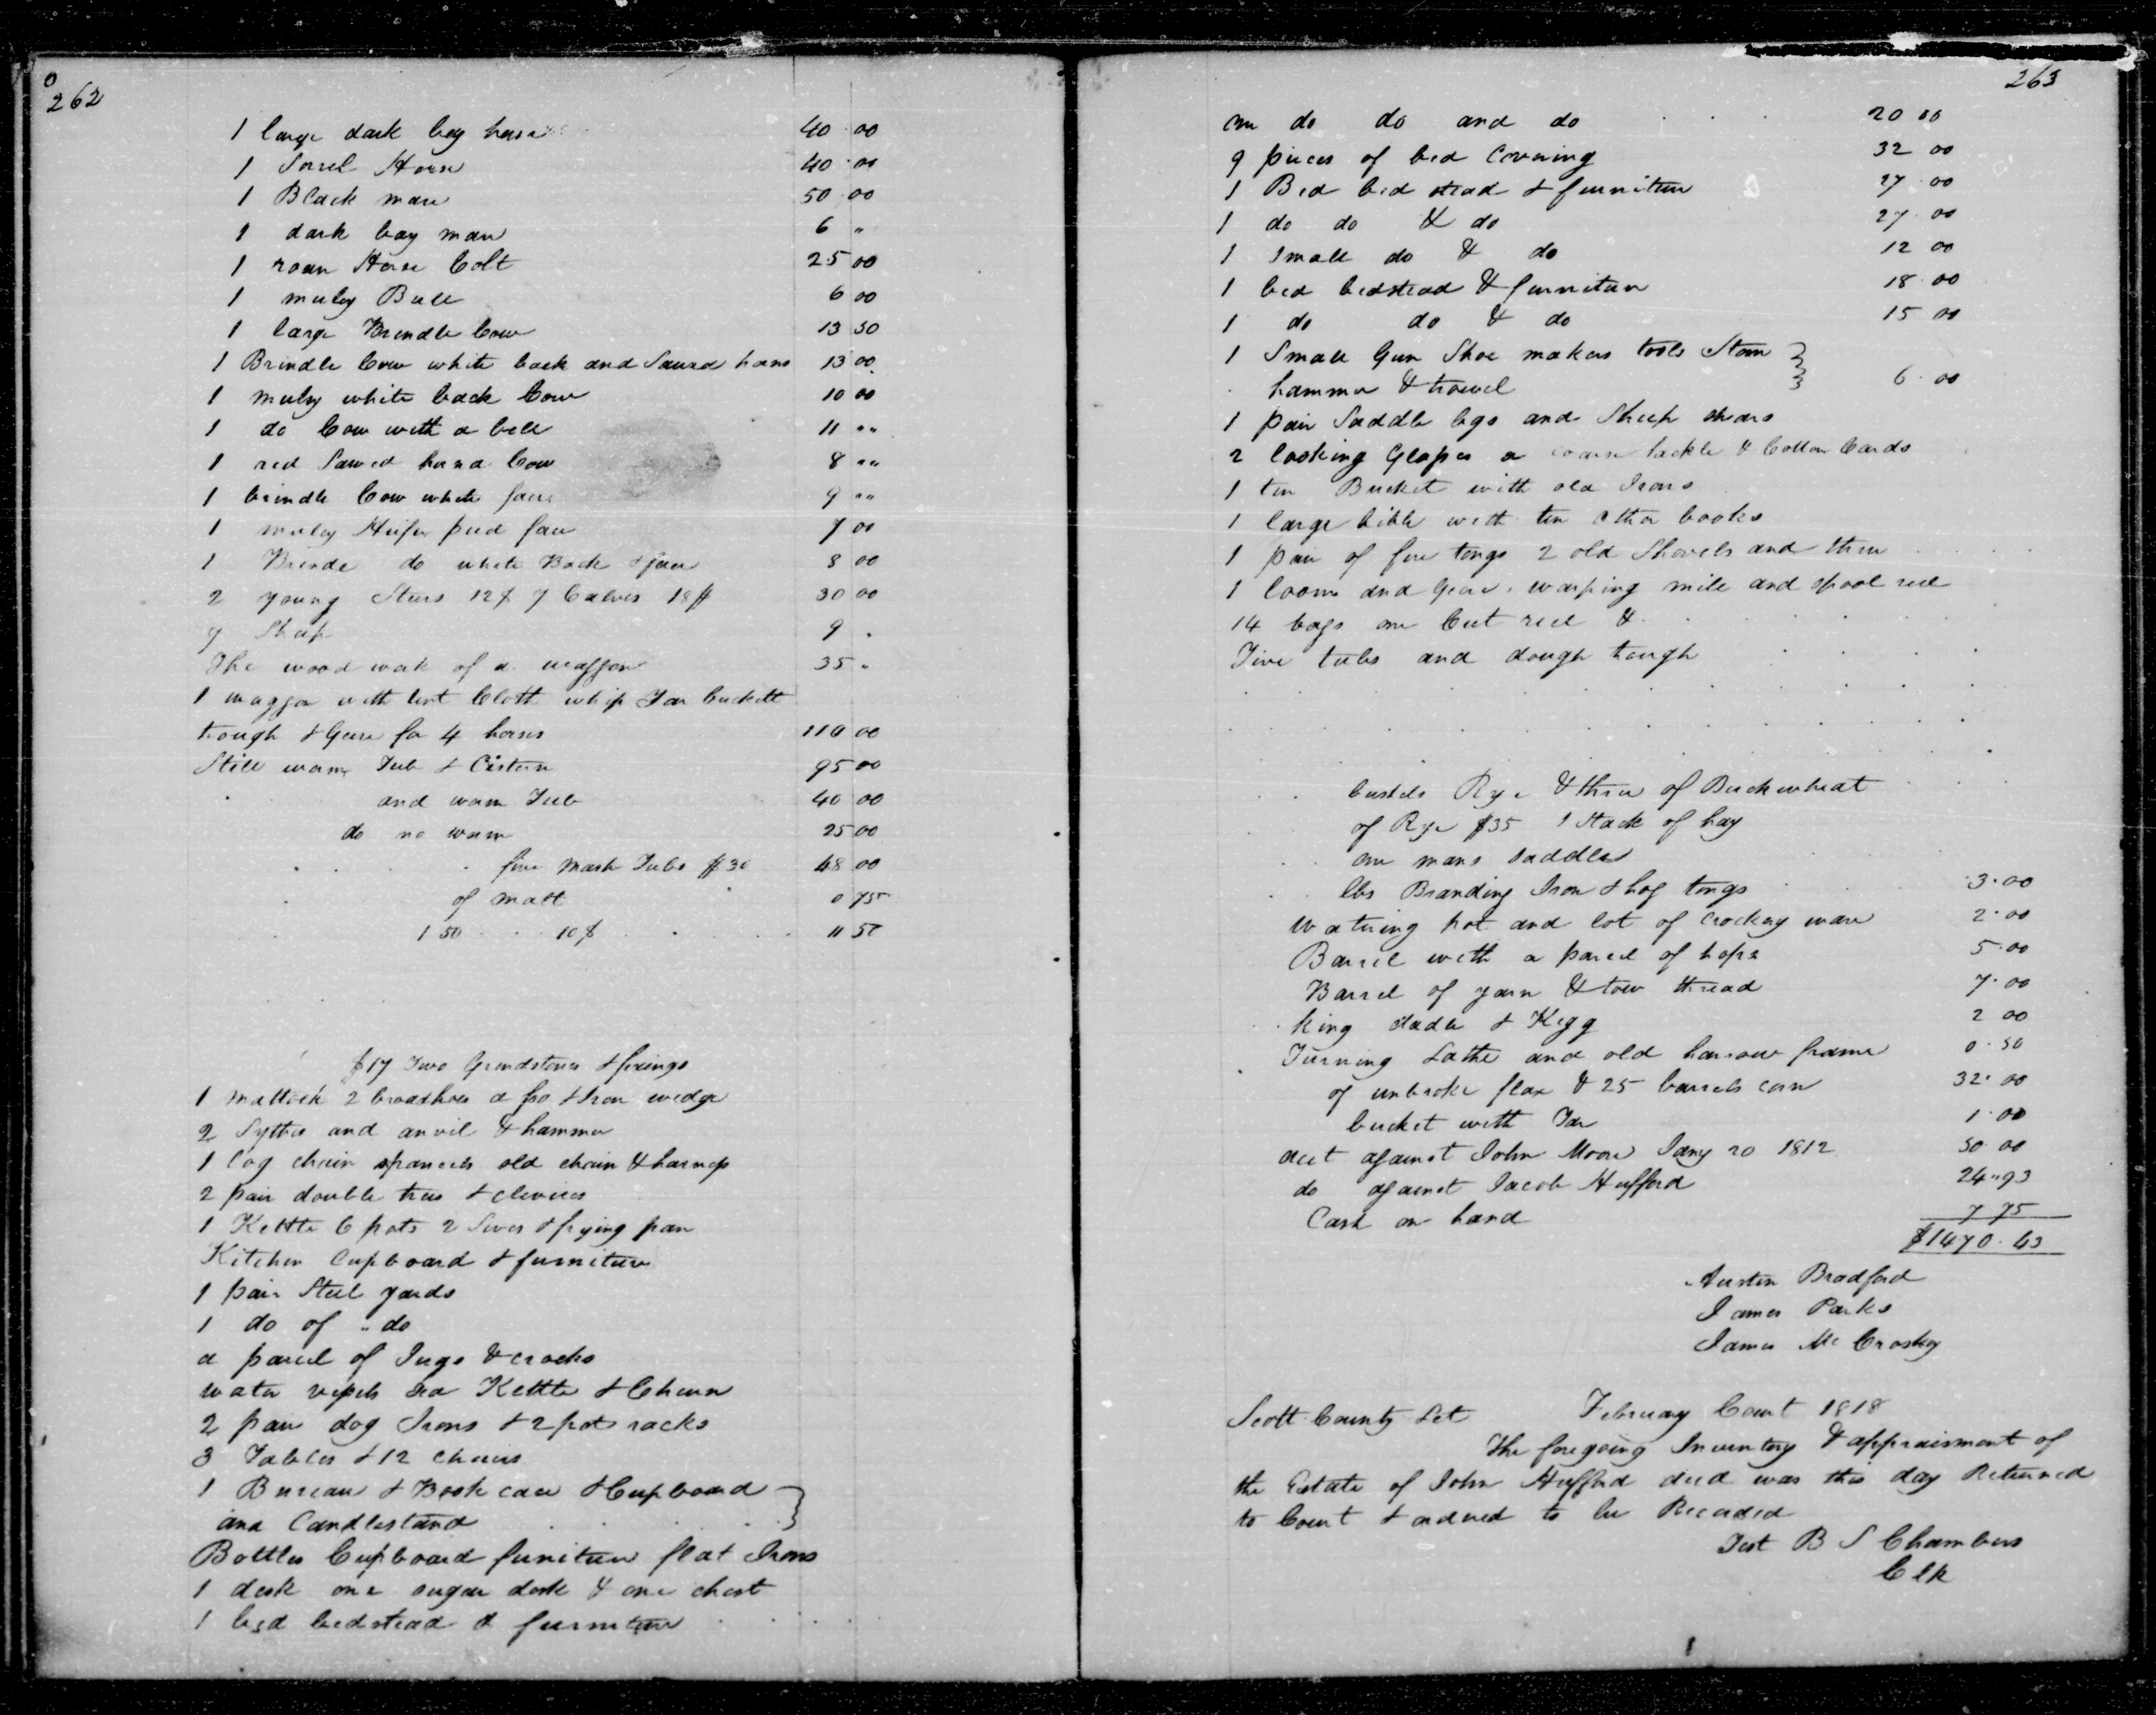 262
1 large dark bay horse 40 00
1 Sorrel Horse 40 00
1 Black mare 50 00
1 dark bay mare 6 "
1 roan Horse Colt 25 00
1 muley Bull 6 00
1 large Brindle Cow 13 50
1 Brindle Cow white back and Sawed horns 13 00
1 muley white back Cow 10 00
1 do Cow with a bell 11 " "
1 red Sawed horned Cow 8 " "
1 brindle Cow white face 9 " "
1 muley Heifer pied face 7 00
1 Brinde do white Back & face 8 00
2 young Steers 12$ 7 Calves 18$ 30 00
9 Sheep 9 "
The wood work of a waggon 35 "
1 waggon with tent Cloth whip Tar buckett
trough & Gear for 4 horses 110 00
Still worm Tub & Cistern 95 00
and worm Tub 40 00
do no worm 25 00
five mash Tubs $30 48 00
of malt 0 75
1 50 10$ 11 50
$17 Two Grindstones & fixings
1 mattock 2 broadhoes a fro & Iron wedge
2 Sythes and anvil & hammer
1 log chain spancels old chain & harness
2 pair double trees & clevices
1 Kettle 6 pots 2 Sives & frying pan
Kitchen Cupboard & furniture
1 pair Steel yards
1 do of " do
a parcel of Jugs & crocks
water vessels tea Kettle & Churn
2 pair dog Irons & 2 pot racks
3 Tables & 12 chairs
1 Bureau & Book case & Cupboard
and Candlestand
Bottles Cupboard funiture flat Irons
1 desk one sugar desk & one chest
1 bed bedstead & furniture
263
one do do and do 20 00
9 pieces of bed Covering 32 00
1 Bed bed stead & furniture 27 00
1 do do & do 27 00
1 Small do & do 12 00
1 bed bedstead & furniture 18 00
1 do do & do 15 00
1 Small Gun Shoe makers tools Stone
hammer & trowel 6 00
1 pair Saddle bgs and Sheep shears
2 looking Glasses a coarse hackle & Cotton Cards
1 tin Bucket with old Irons
1 large bible with ten other books
1 pair of fire tongs 2 old Shovels and three
1 loom and Gear, warping mill and spool reel
14 bags one Cut reel &
Five tubs and dough trough
bushels Rye & three of Buckwheat
of Rye $35 1 Stack of hay
one mans saddle
lbs Branding Iron & hog tongs 3.00
watering pot and lot of crockery ware 2.00
Barrel with a parcel of hops 5.00
Barrel of yarn & tow thread 7.00
king ladle & Kegg 2 00
Turning Lathe and old harrow frame 0.50
of unbroke flax & 25 barrels corn 32.00
bucket with Tar 1.00
acct against John Moore Jany 20 1812 50 00
do against Jacob Hufford 24 " 93
Cash on hand 7 75
$1470.43
Austin Bradford
James Parks
James Mc Croskey
Scott County Sct February Court 1818
The foregoing Inventory & appraisment of
the Estate of John Hufford decd was this day Returned
to Court & ordered to be Recorded
Test B S Chambers
Clk